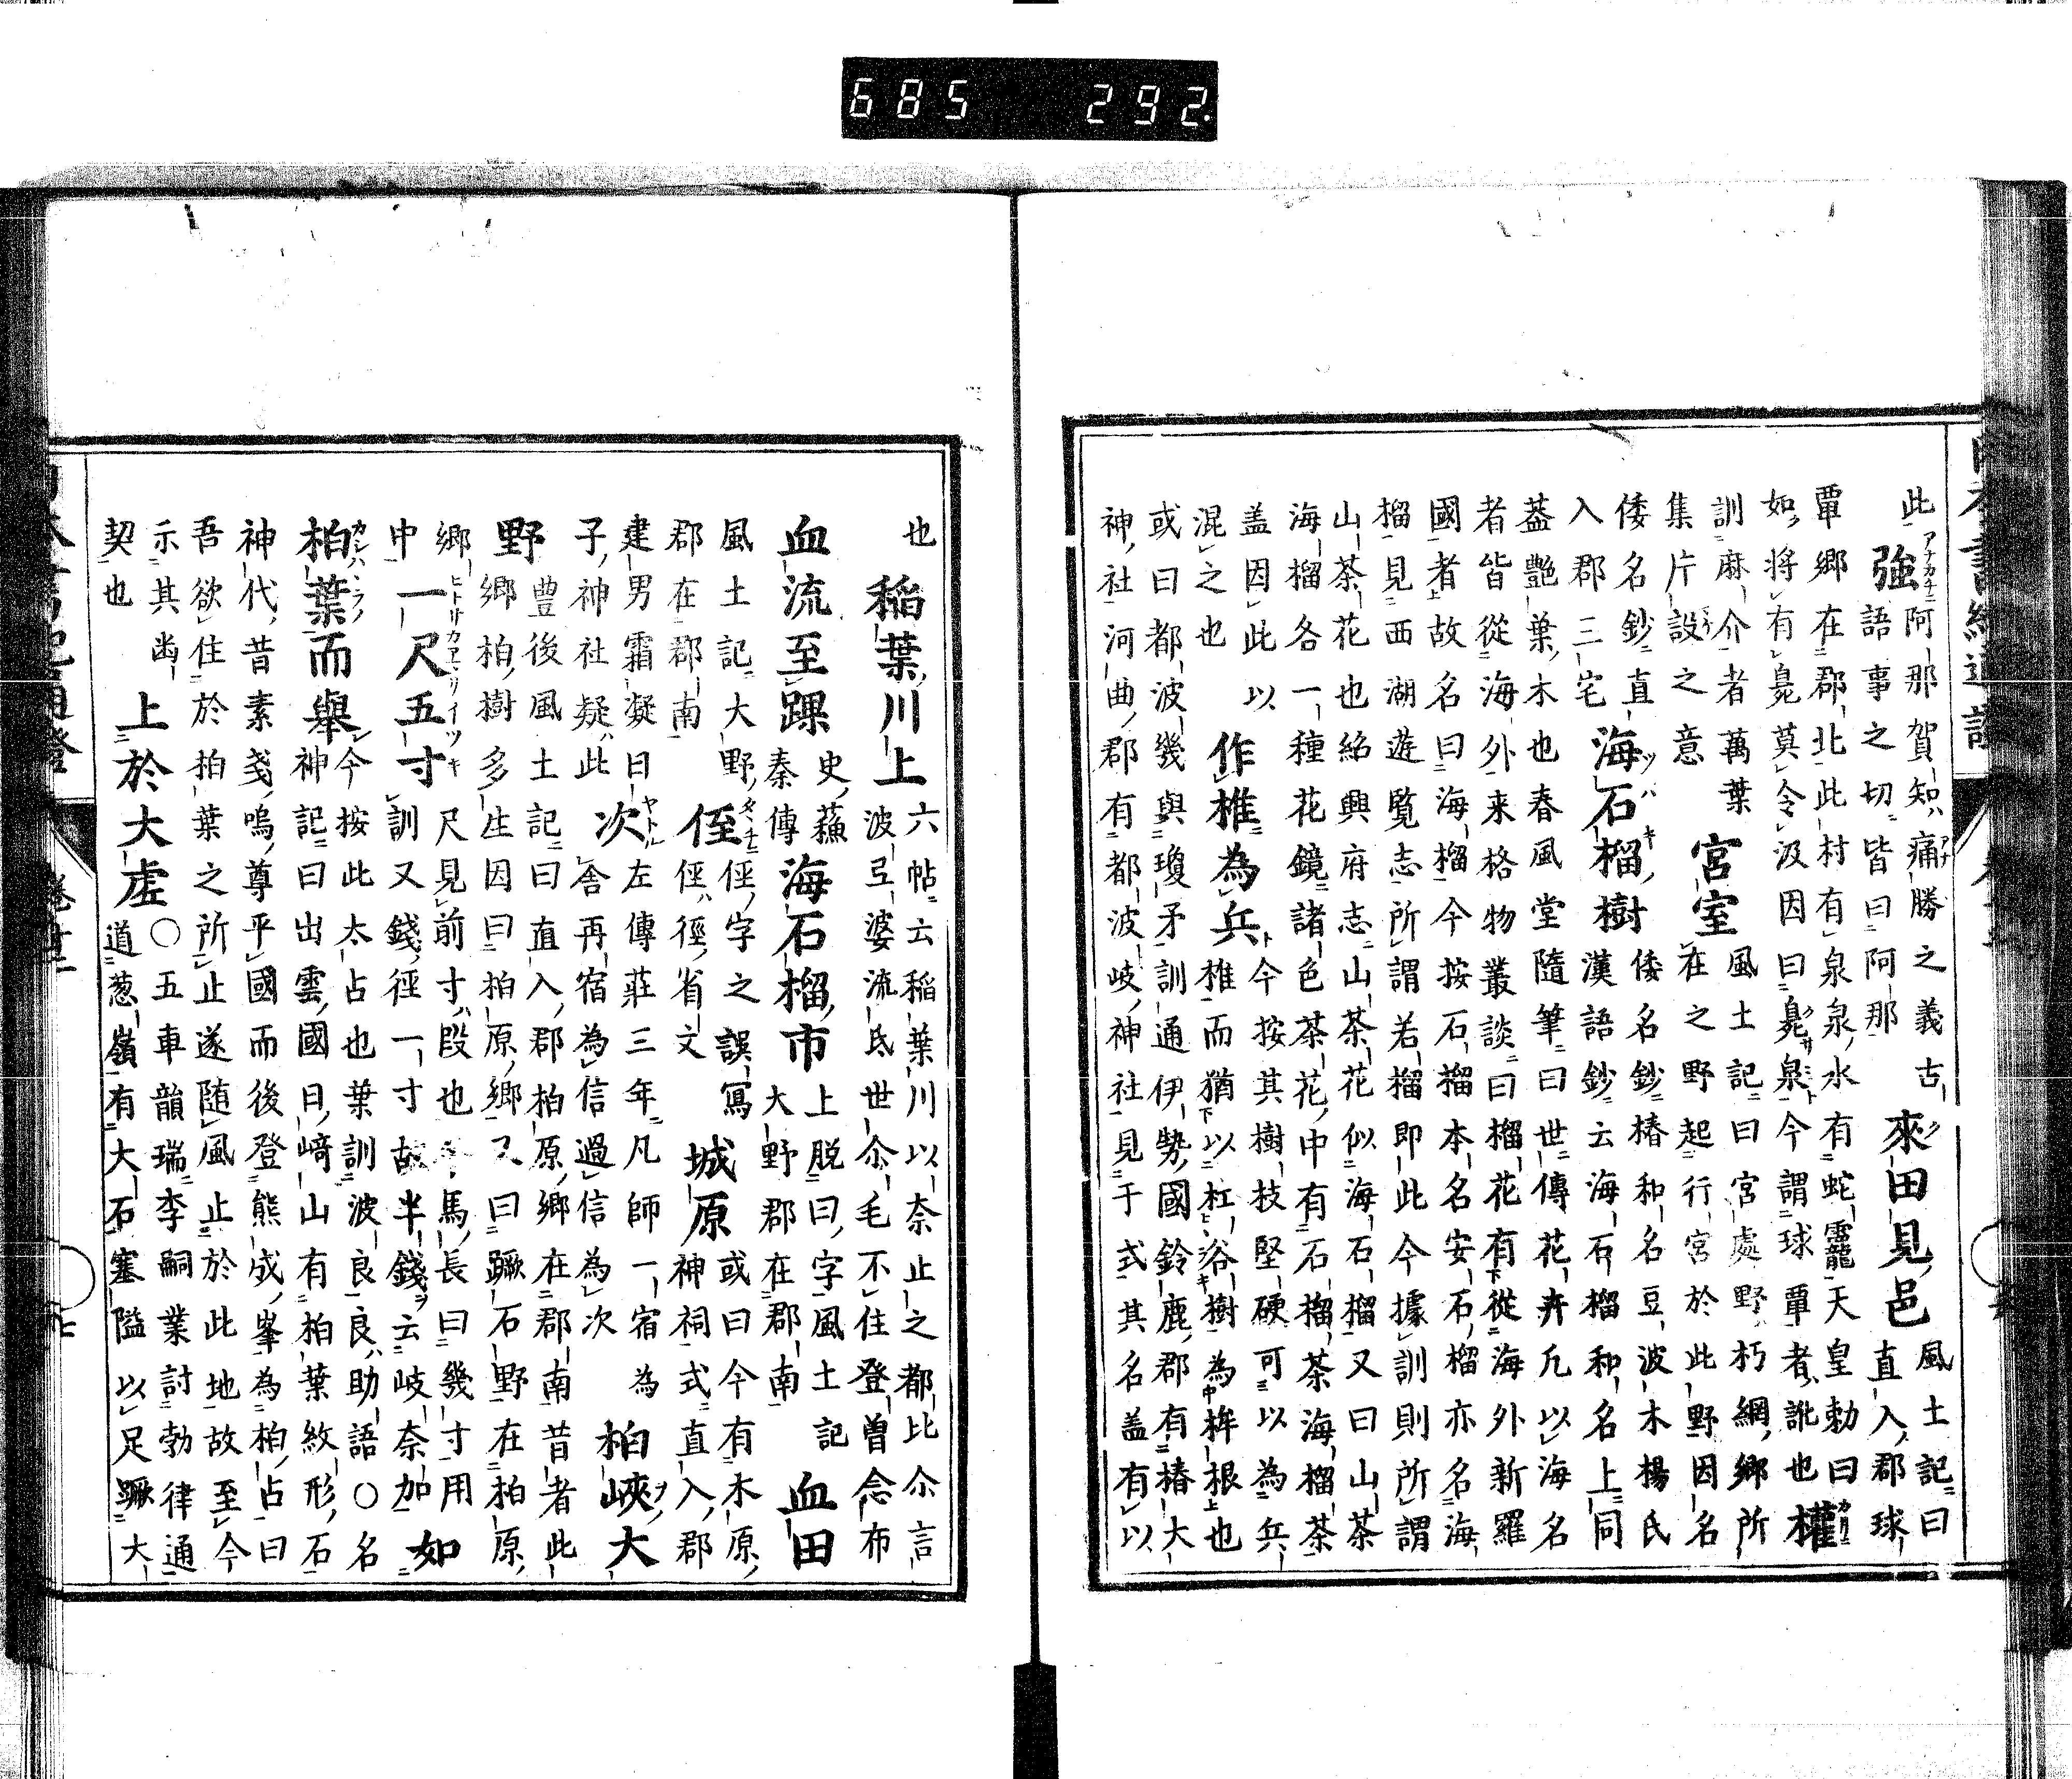 685 292.
此
強 阿那賀知痛勝之義古
語事之切皆曰阿那
來田見邑 風土記曰
直入郡球
覃鄉在郡北此村有泉泉水有蛇龗天皇勅曰
如將有臭莫令汲因曰臭泉今謂球覃者訛也 權
訓麻介者萬葉
集片設之意
宮室 風土記曰宮處野朽網鄉所
在之野起行宮於此野因名
倭名鈔直
入郡三宅
海石榴樹 倭名鈔椿和名豆波木楊氏
漢語鈔云海石榴和名上同
葢艷葉木也春風堂隨筆曰世傳花卉凡以海名
者皆從海外来格物叢談曰榴花有從海外新羅
國者故名曰海榴今按石榴本名安石榴亦名海
榴見西湖遊覧志所謂若榴即此今據訓則所謂
山茶花也紹興府志山茶花似海石榴又曰山茶
海榴各一種花鏡諸色茶花中有石榴茶海榴茶
盖因此以
混之也
作椎為兵 今按其樹枝堅硬可以為兵
椎而猶以杠谷樹為桙根也
或曰都波幾與瓊矛訓通伊勢國鈴鹿郡有椿大
神社河曲郡有都波岐神社見于式其名盖有以
也
稲葉川上 六帖云稲葉川以奈止之都比尒言
波弖婆流氐世尒毛不住登曽念布
血流至踝 史蘓
秦傳
海石榴市 上脱曰字風土記
大野郡在郡南
血田
風土記大野
郡在郡南
侄 侄字之誤寫
侄徑省文
城原 或曰今有木原
神祠式直入郡
建男霜凝日
子神社疑此
次 左傳莊三年凡師一宿為
舎再宿為信過信為次
柏峽大
野 豊後風土記曰直入郡柏原鄉在郡南昔者此
鄉柏樹多生因曰柏原鄉又曰蹶石野在柏原
鄉
中
一尺五寸 尺見前寸段也馬長曰幾寸用
訓又錢徑一寸故半錢云岐奈加
如
柏葉而舉 今按此太占也葉訓波良良助語〇名
神記曰出雲國日﨑山有柏葉紋形石
神代昔素戔嗚尊平國而後登熊成峯為柏占曰
吾欲住於柏葉之所止遂随風止於此地故至今
示其凾
契也
上於大虚 〇五車韻瑞李嗣業討勃律通
道葱嶺有大石塞隘以足蹶大